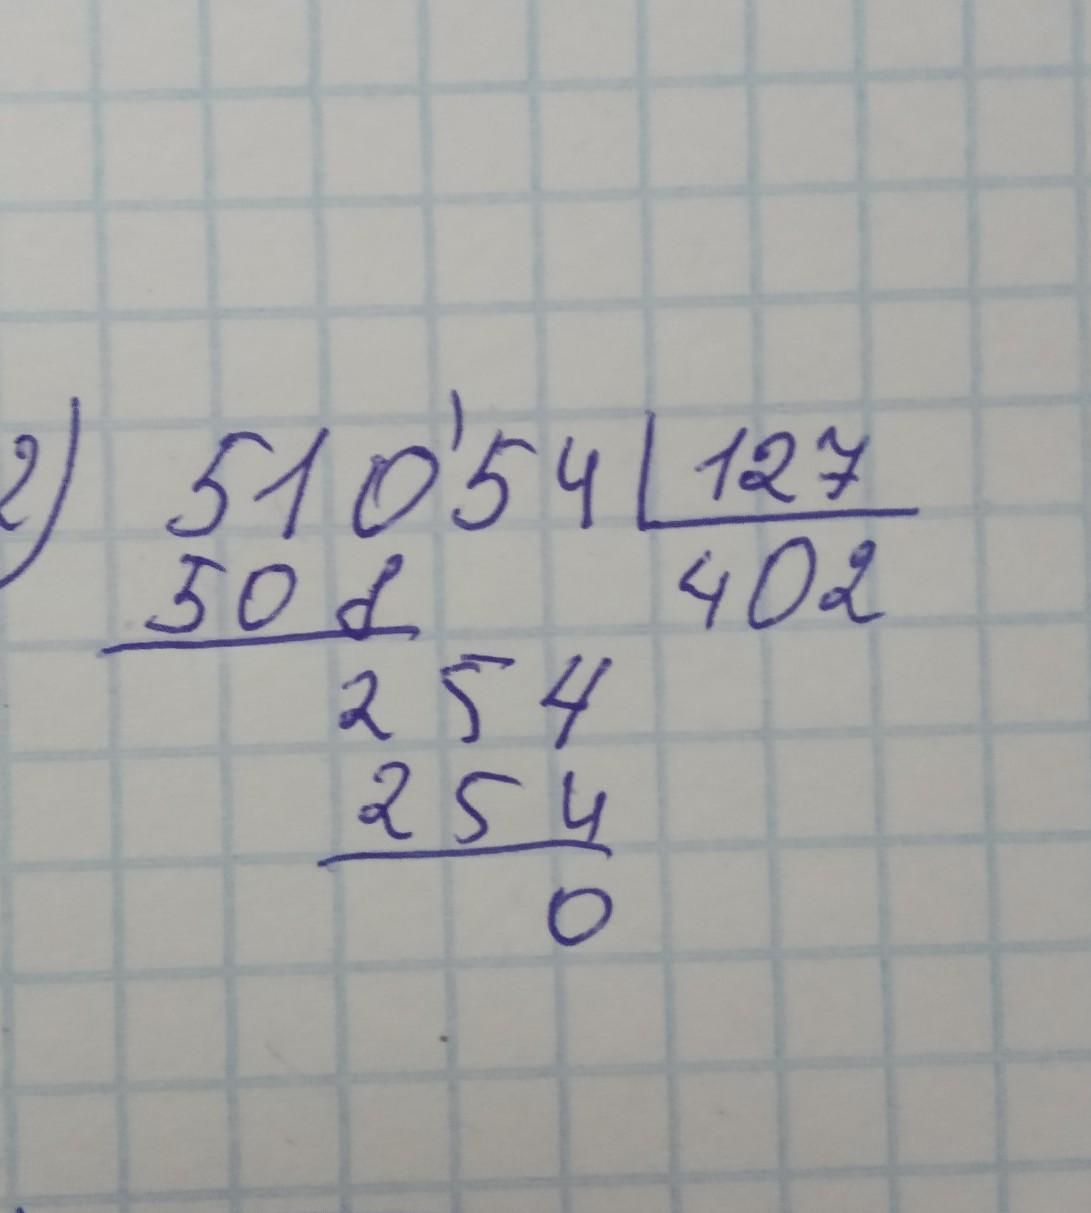 2) 510'54 | 127
508 402
254
254
0